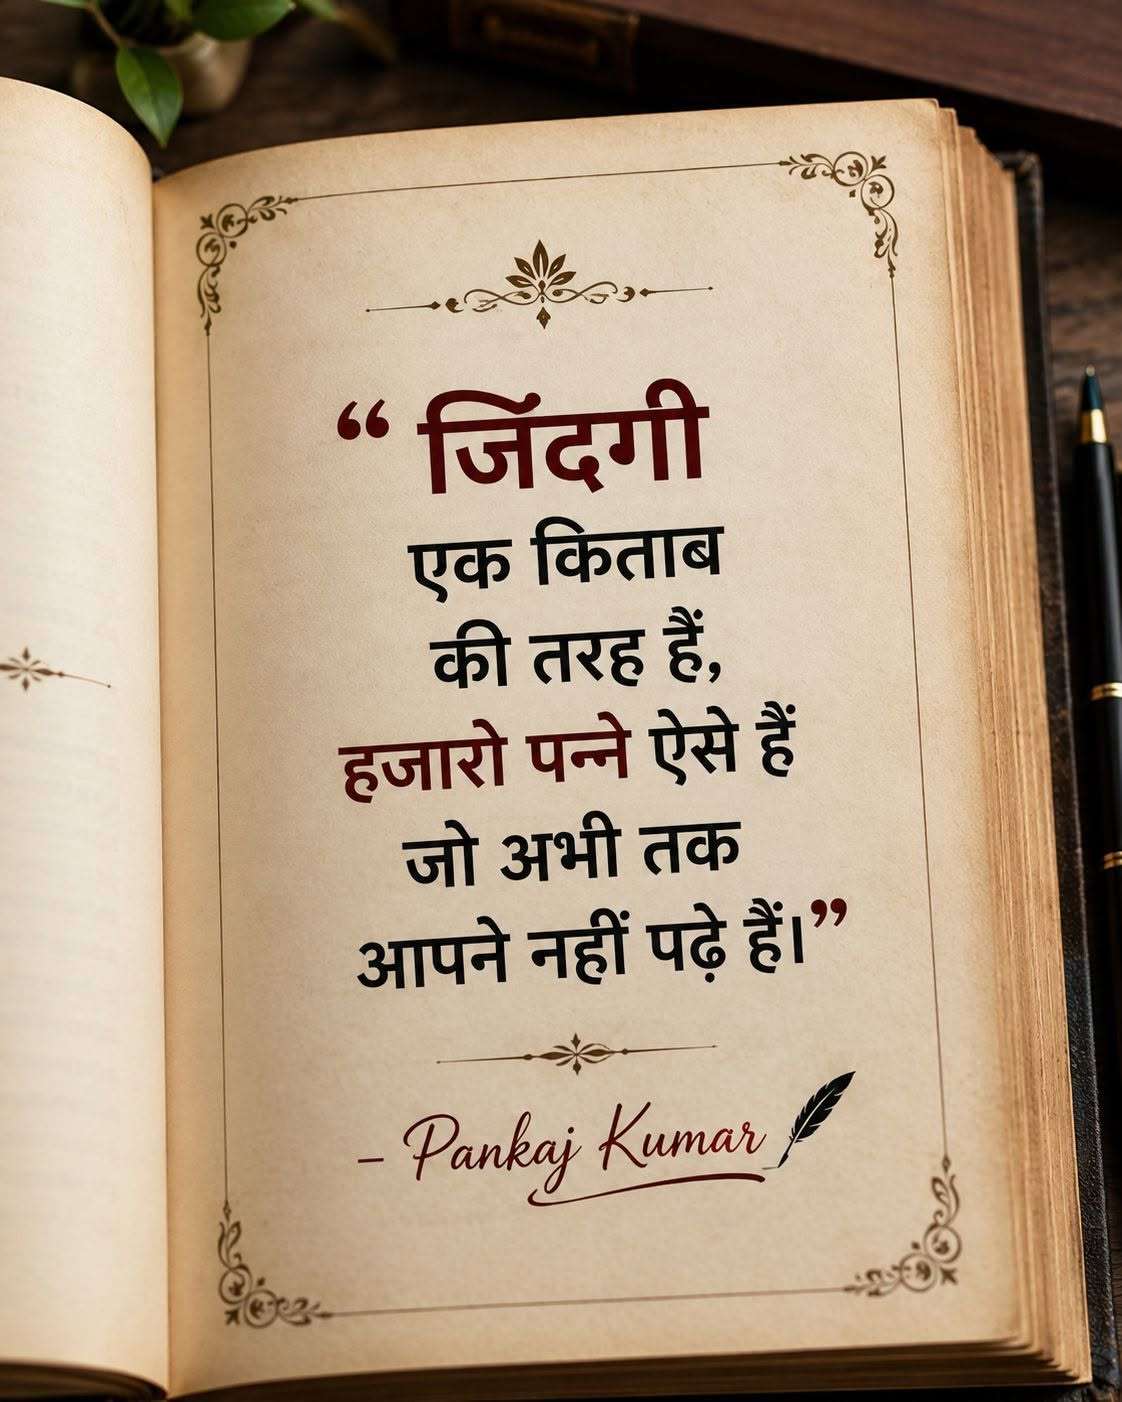 “ जिंदगी
एक किताब
की तरह हैं,
हजारो पन्ने ऐसे हैं
जो अभी तक
आपने नहीं पढ़े हैं।”
– Pankaj Kumar